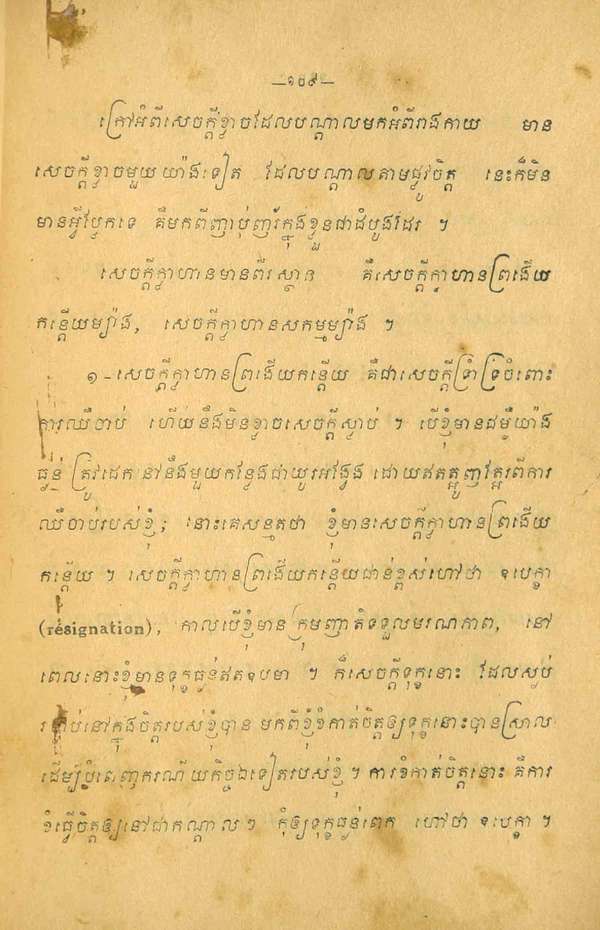 —១០៩—
ក្រៅអំពីសេចក្តីខ្លាចដែលបណ្តាលមកអំពីរាងកាយ មាន
សេចក្តីខ្លាចមួយយ៉ាងទៀត ដែលបណ្តាលតាមផ្លូវចិត្ត នេះក៏មិន
មានអ្វីប្លែកទេ គឺមកពីញាប់ញ័រក្នុងខ្លួនជាដំបូងដែរ ។
សេចក្តីក្លាហានមានពីរស្ថាន គឺសេចក្តីក្លាហានព្រងើយ
កន្តើយម្យ៉ាង, សេចក្តីក្លាហានសកម្មម្យ៉ាង ។
១-សេចក្តីក្លាហានព្រងើយកន្តើយ គឺជាសេចក្តីទ្រាំទ្រចំពោះ
ការឈឺចាប់ ហើយនឹងមិនខ្លាចសេចក្តីស្លាប់ ។ បើខ្ញុំមានជម្ងឺយ៉ាង
ធ្ងន់ ត្រូវដេកនៅនឹងមួយកន្លែងជាយូរអង្វែង ដោយឥតត្អូញត្អែរពីការ
ឈឺចាប់របស់ខ្ញុំ; នោះគេសន្មតថា ខ្ញុំមានសេចក្តីក្លាហានព្រងើយ
កន្តើយ ។ សេចក្តីក្លាហានព្រងើយកន្តើយជាន់ខ្ពស់ហៅថា ឧបេក្ខា
(résignation), កាលបើខ្ញុំមានក្រុមញាតំទទួលមរណភាព, នៅ
ពេលនោះខ្ញុំមានទុក្ខធ្ងន់ឥតឧបមា ។ ក៏សេចក្តីទុក្ខនោះ ដែលស្ងប់
រម្ងាប់នៅក្នុងចិត្តរបស់ខ្ញុំបាន មកពីខ្ញុំខំកាត់ចិត្តឲ្យទុក្ខនោះបានស្រាល
ដើម្បីបំពេញករណីយកិច្ចឯទៀតរបស់ខ្ញុំ ។ ការខំកាត់ចិត្តនោះ គឺការ
ខំធ្វើចិត្តឲ្យនៅជាកណ្តាលៗ កុំឲ្យទុក្ខធ្ងន់ពេក ហៅថា ឧបេក្ខា ។